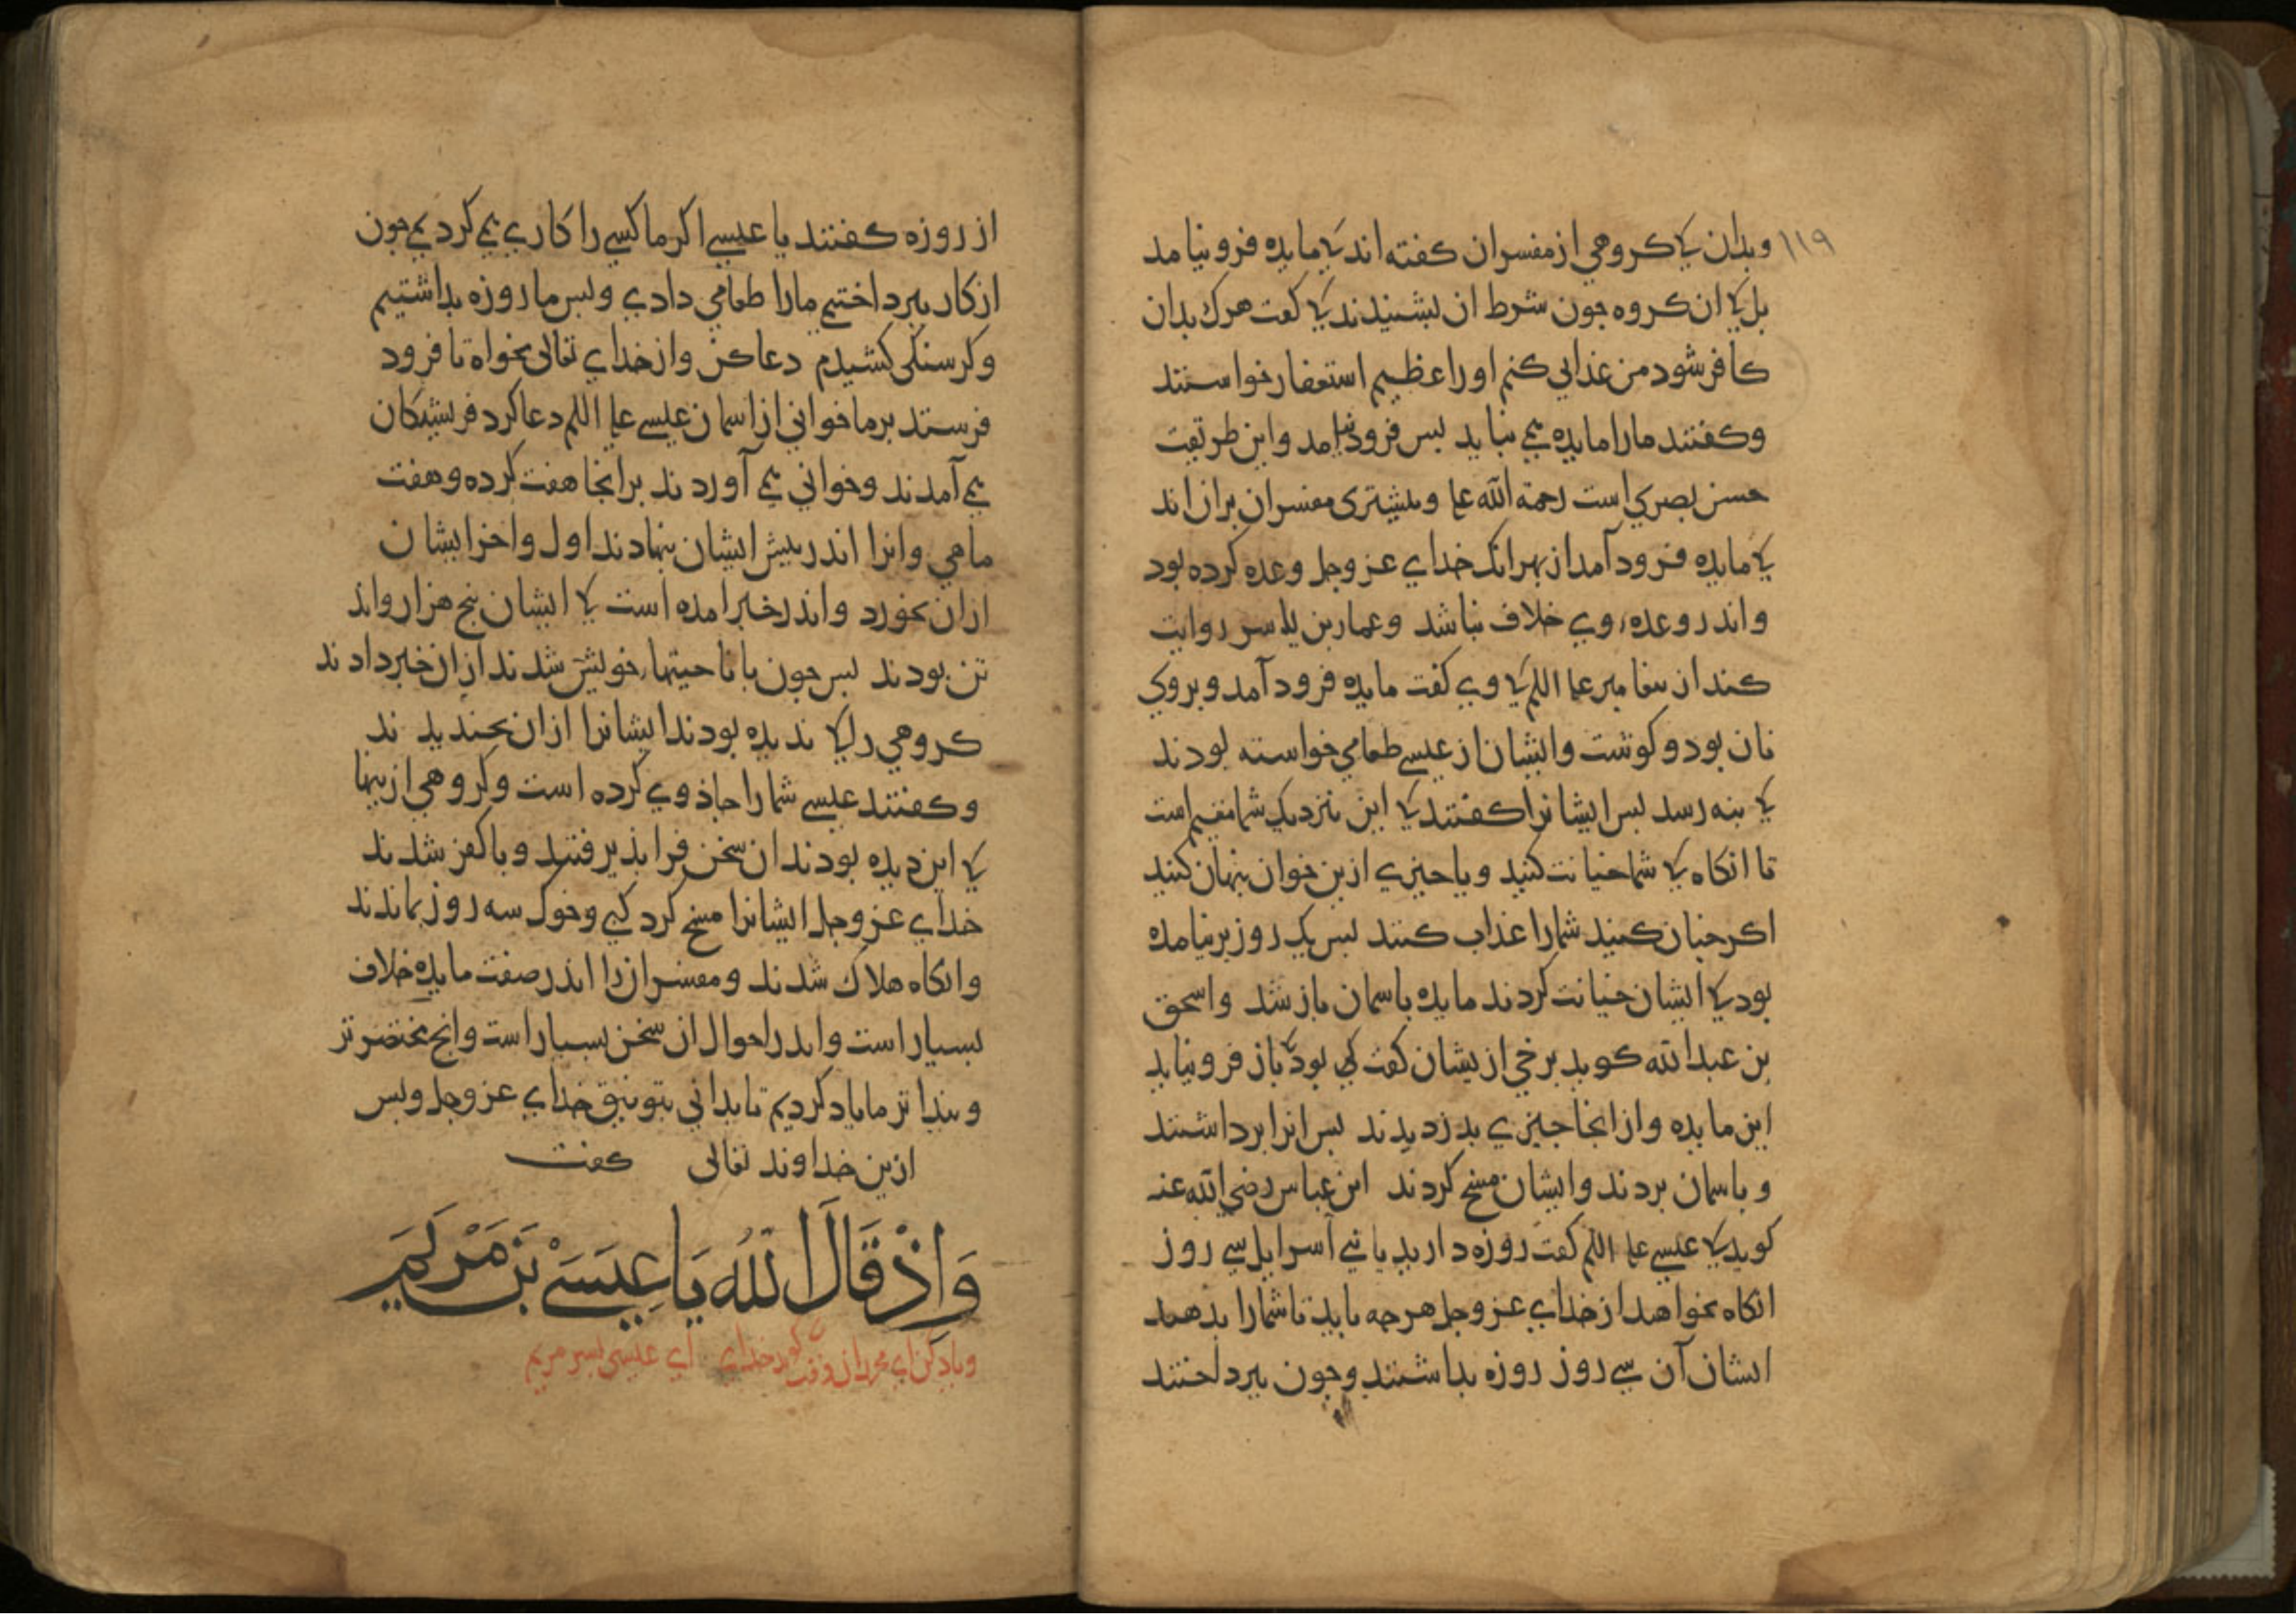 ۱۱۹
وبدان کی کروهی ازمفسران کفته اند کی مایده فرو نیامد
بل کی ان کروه جون شرط ان بشنیدند کی کفت هرک بدان
کافر شود من عذابی کنم اورا عظیم استغفار خواستند
وکفتند مارا مایده می نباید بس فرود نیامد واین طریقت
حسن بصری است رحمة الله علیه وبیشتری مفسران بران اند
کی مایده فرود آمد از بهر انک خدای عزوجل وعده کرده بود
واندر وعده وی خلاف نباشد وعمار بن یاسر روایت
کند از بیغامبر علیه السلم کی وی کفت مایده فرود آمد وبروی
نان بود وکوشت وایشان از عیسی طعامی خواسته بودند
کی بنه رسد بس ایشانرا کفتند کی این نزدیک شما مقیم است
تا انکاه کی شما خیانت کنید ویا جیزی ازین خوان بنهان کنید
اکر جنان کنید شمارا عذاب کنند بس یک روز برنیامده
بود کی ایشان خیانت کردند مایده باسمان باز شد واسحق
بن عبدالله کوید برخی ازیشان کفت کی بود کی باز فرو نیاید
این مایده وازانجا جیزی بدزدیدند بس انرا برداشتند
وباسمان بردند وایشان مسخ کردند ابن عباس رضی الله عنه
کوید کی عیسی علیه السلم کفت روزه دارید یا بنی آسرایل سی روز
انکاه بخواهید از خدای عزوجل هرجه باید تا شمارا بدهد
ایشان آن سی روز روزه بداشتند وجون ببرداختند
از روزه کفتند یا عیسی اکر ما کسی را کاری می کردیمی جون
از کار ببرداختیمی مارا طعامی دادی وبس ما روزه بداشتیم
وکرسنکی کشیدیم دعا کن واز خدای تعالی بخواه تا فرود
فرستد برما خوانی از اسمان عیسی علیه السلم دعا کرد فریشتکان
می آمدند وخوانی می آوردند برانجا هفت کرده وهفت
ماهی وانرا اندر بیش ایشان بنهادند اول واخر ایشان
ازان بخورد واندر خبر امده است کی ایشان بنج هزار واند
تن بودند بس جون با ناحیتها خویش شدند ازان خبر دادند
کروهی را کی ندیده بودند ایشانرا ازان بخندیدند
وکفتند عیسی شمارا جاذوی کرده است وکروهی ازینها
کی این دیده بودند ان سخن فرا بذیرفتند وبا کفر شدند
خدای عزوجل ایشانرا مسخ کرد کبی وخوک سه روز بماندند
وانکاه هلاک شدند ومفسرانرا اندر صفت مایده خلاف
بسیار است واندر احوال ان سخن بسیار است وانج مختصرتر
وبیداتر ما یاد کردیم تا بدانی بتوفیق خدای عزوجل وبس
ازین خداوند تعالی کفت
وَاِذْ قَالَ اللهُ يَا عِيسَىْ بْنَ مَرْيَمَ
ویاد کن ای محمد ان وقت کی کوید خدای ای عیسی بسر مریم